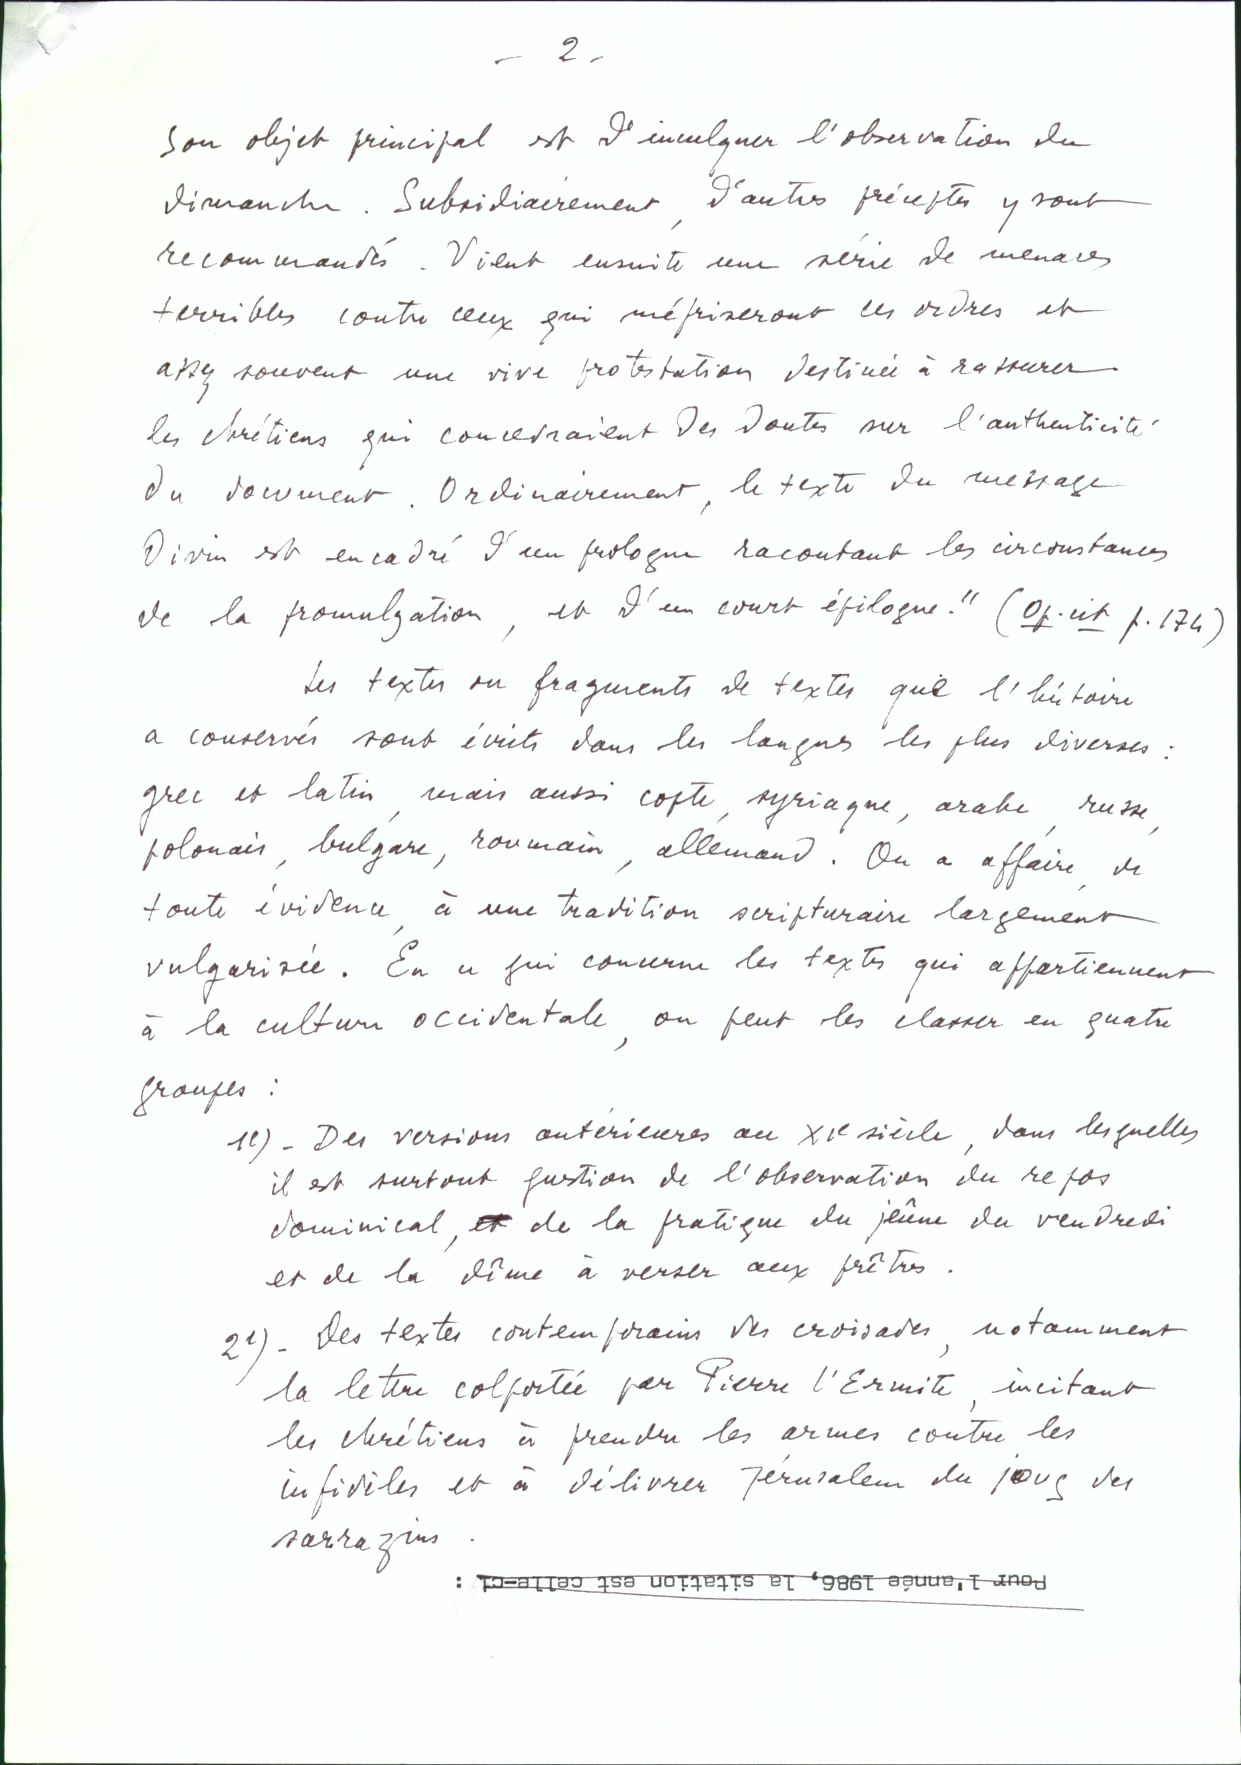 - 2 -
Son objet principal est d'inculquer l'observation du
dimanche. Subsidiairement, d'autres préceptes y sont
recommandés. Vient ensuite une série de menaces
terribles contre ceux qui mépriseront ces ordres et
assez souvent une vive protestation destinée à rassurer
les chrétiens qui concevraient des doutes sur l'authenticité
du document. Ordinairement, le texte du message
Divin est encadré d'un prologue racontant les circonstances
de la promulgation, et d'un court épilogue." (Op. cit p. 174)
Les textes ou fragments de textes que l'histoire
a conservés sont écrits dans les langues les plus diverses :
grec et latin, mais aussi copte, syriaque, arabe, russe,
polonais, bulgare, roumain, allemand. On a affaire, de
toute évidence, à une tradition scripturaire largement
vulgarisée. En ce qui concerne les textes qui appartiennent
à la culture occidentale, on peut les classer en quatre
groupes :
1e) - Des versions antérieures au XIe siècle, dans lesquelles
il est surtout question de l'observation du repos
dominical, et de la pratique du jeûne du vendredi
et de la dîme à verser aux prêtres.
2e) - Des textes contemporains des croisades, notamment
la lettre colportée par Pierre l'Ermite, incitant
les chrétiens à prendre les armes contre les
infidèles et à délivrer Jérusalem du joug des
sarrazins.
Pour l'année 1986, la sitation est celle-ci :